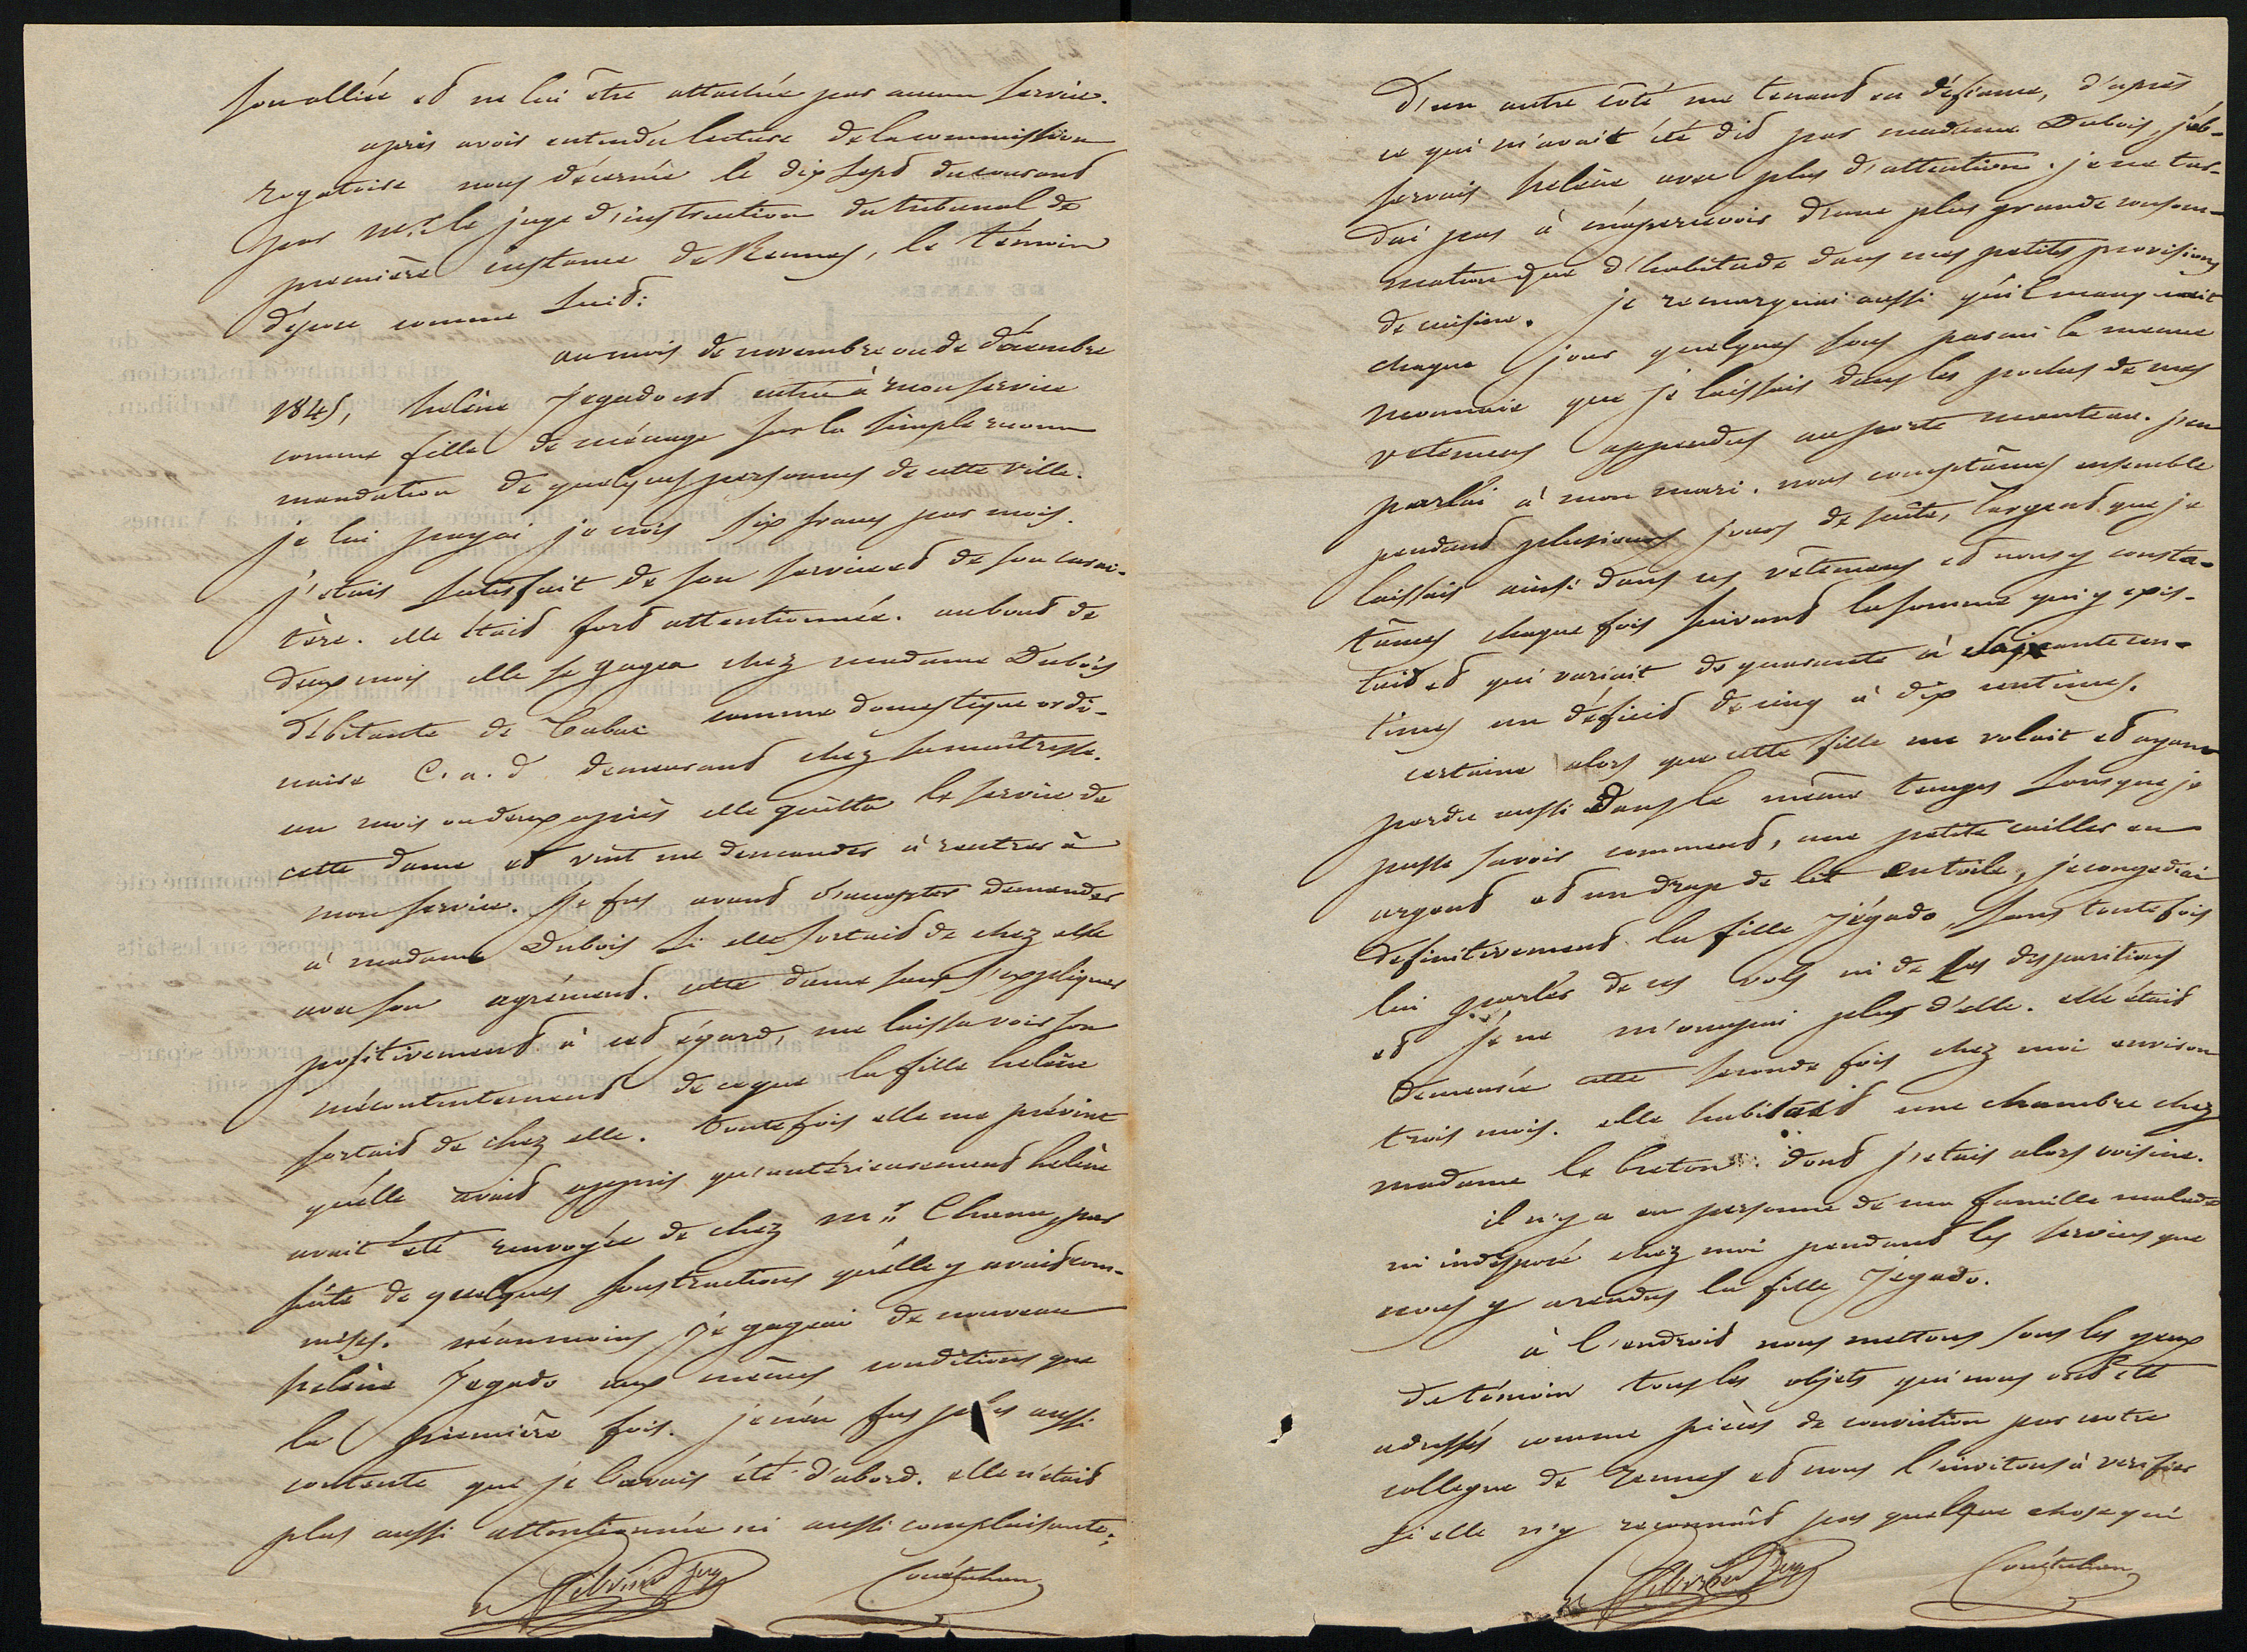 son alliée et ne lui être attachée par aucun service.
après avoir entendu lecture de la commission
rogatoire nous décernée le dix sept du courant
par Mr. le juge d'instruction du tribunal de
première instance de Rennes, le témoin
dépose comme suit:
au mois de novembre ou de décembre
1845, helène Jegado est entrée à mon service
comme fille de ménage sur la simple recom
mandation de quelques personnes de cette ville.
je lui payai je crois six francs par mois.
j'etais satisfait de son service et de son carac-
tère. elle était fort attentionnée. au bout de
deux mois elle se gagea chez madame Dubois
débitante de tabac comme domestique ordi-
naire C.a.d demeurant chez sa maîtresse.
un mois ou deux après elle quitta le service de
cette dame et vint me demander à rentrer à
mon service. Je fus avant d'accepter demander
à madame Dubois si elle sortait de chez elle
avec son agrément. cette dame sans s'expliquer
positivement à cet égard, me laissa voir son
mécontentement de ce que la fille helène
sortait de chez elle. toutefois elle me prévint
qu'elle avait appris qu'antérieurement helène
avait été renvoyée de chez Mr par
suite de quelques soustractions qu'elle y avait com-
mises. néanmoins je gageai de nouveau
helène Jegado aux mêmes conditions que
la première fois. je n'en fus plus aussi
contente que je l'avais été d'abord. elle n'était
plus aussi attentionnée ni aussi complaisante;
D'un autre côté me tenant en défiance, d'après
ce qui m'avait été dit par madame Dubois, j'ob-
servais helène avec plus d'attention. je ne tar-
dai pas à m'apercevoir d'une plus grande consom-
mation que d'habitude dans mes petites provisions
de cuisine. je remarquai aussi qu'il manquait
chaque jour quelques sous parmi la menue
monnaie que je laissais dans les poches de mes
vetemens appendus au porte manteau. j'en
parlai à mon mari. nous comptâmes ensemble
pendant plusieurs jours de suite, l'argent que je
laissais ainsi dans ces vêtemens et nous y consta-
tâmes chaque fois suivant la somme qui y exis-
tait et qui variait de quarante à soixante cen-
times un déficit de cinq à dix centimes.
certaine alors que cette fille me volait et ayant
perdu aussi dans le même temps sans que je
pusse savoir comment, une petite cuiller en
argent et un drap de lit en toile, je congediai
definitivement la fille Jégado, sans toutefois
lui parler de ces vols ni de ces disparitions
et je ne m'occupai plus d'elle. elle était
demeurée cette seconde fois chez moi environ
trois mois. elle habitait une chambre chez
madame le breton dont j'etais alors voisine.
il n'y a eu personne de ma famille malade
ni indisposé chez moi pendant les services que
nous y a rendus la fille Jégado.
à l'endroit nous mettons sous les yeux
du témoin tous les objets qui nous ont été
adressés comme pièces de conviction par notre
collegue de rennes et nous l'invitons à verifier
si elle n'y reconnaît pas quelque chose qui